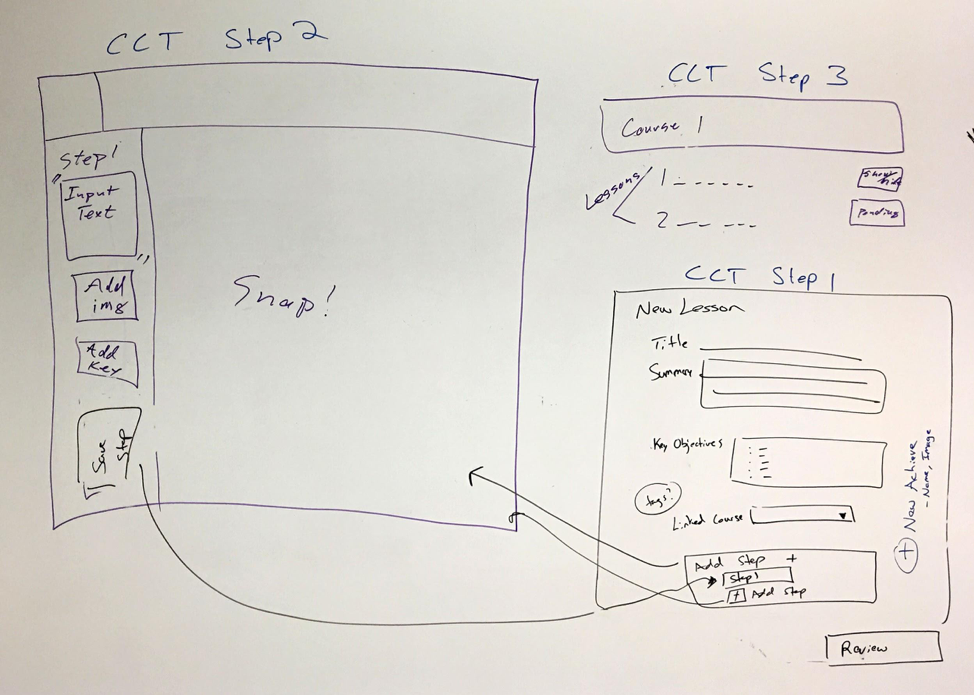 CCT Step 2
Step1
Input
Text
Add
img
Add
Key
Save
Step
Snap!
CCT Step 3
Course 1
Lessons
1
2
Pending
CCT Step 1
New Lesson
Title
Summary
Key Objectives
tags?
Linked Course
Add Step +
Step1
+ Add Step
+ New Achieve
- Name, Image
Review